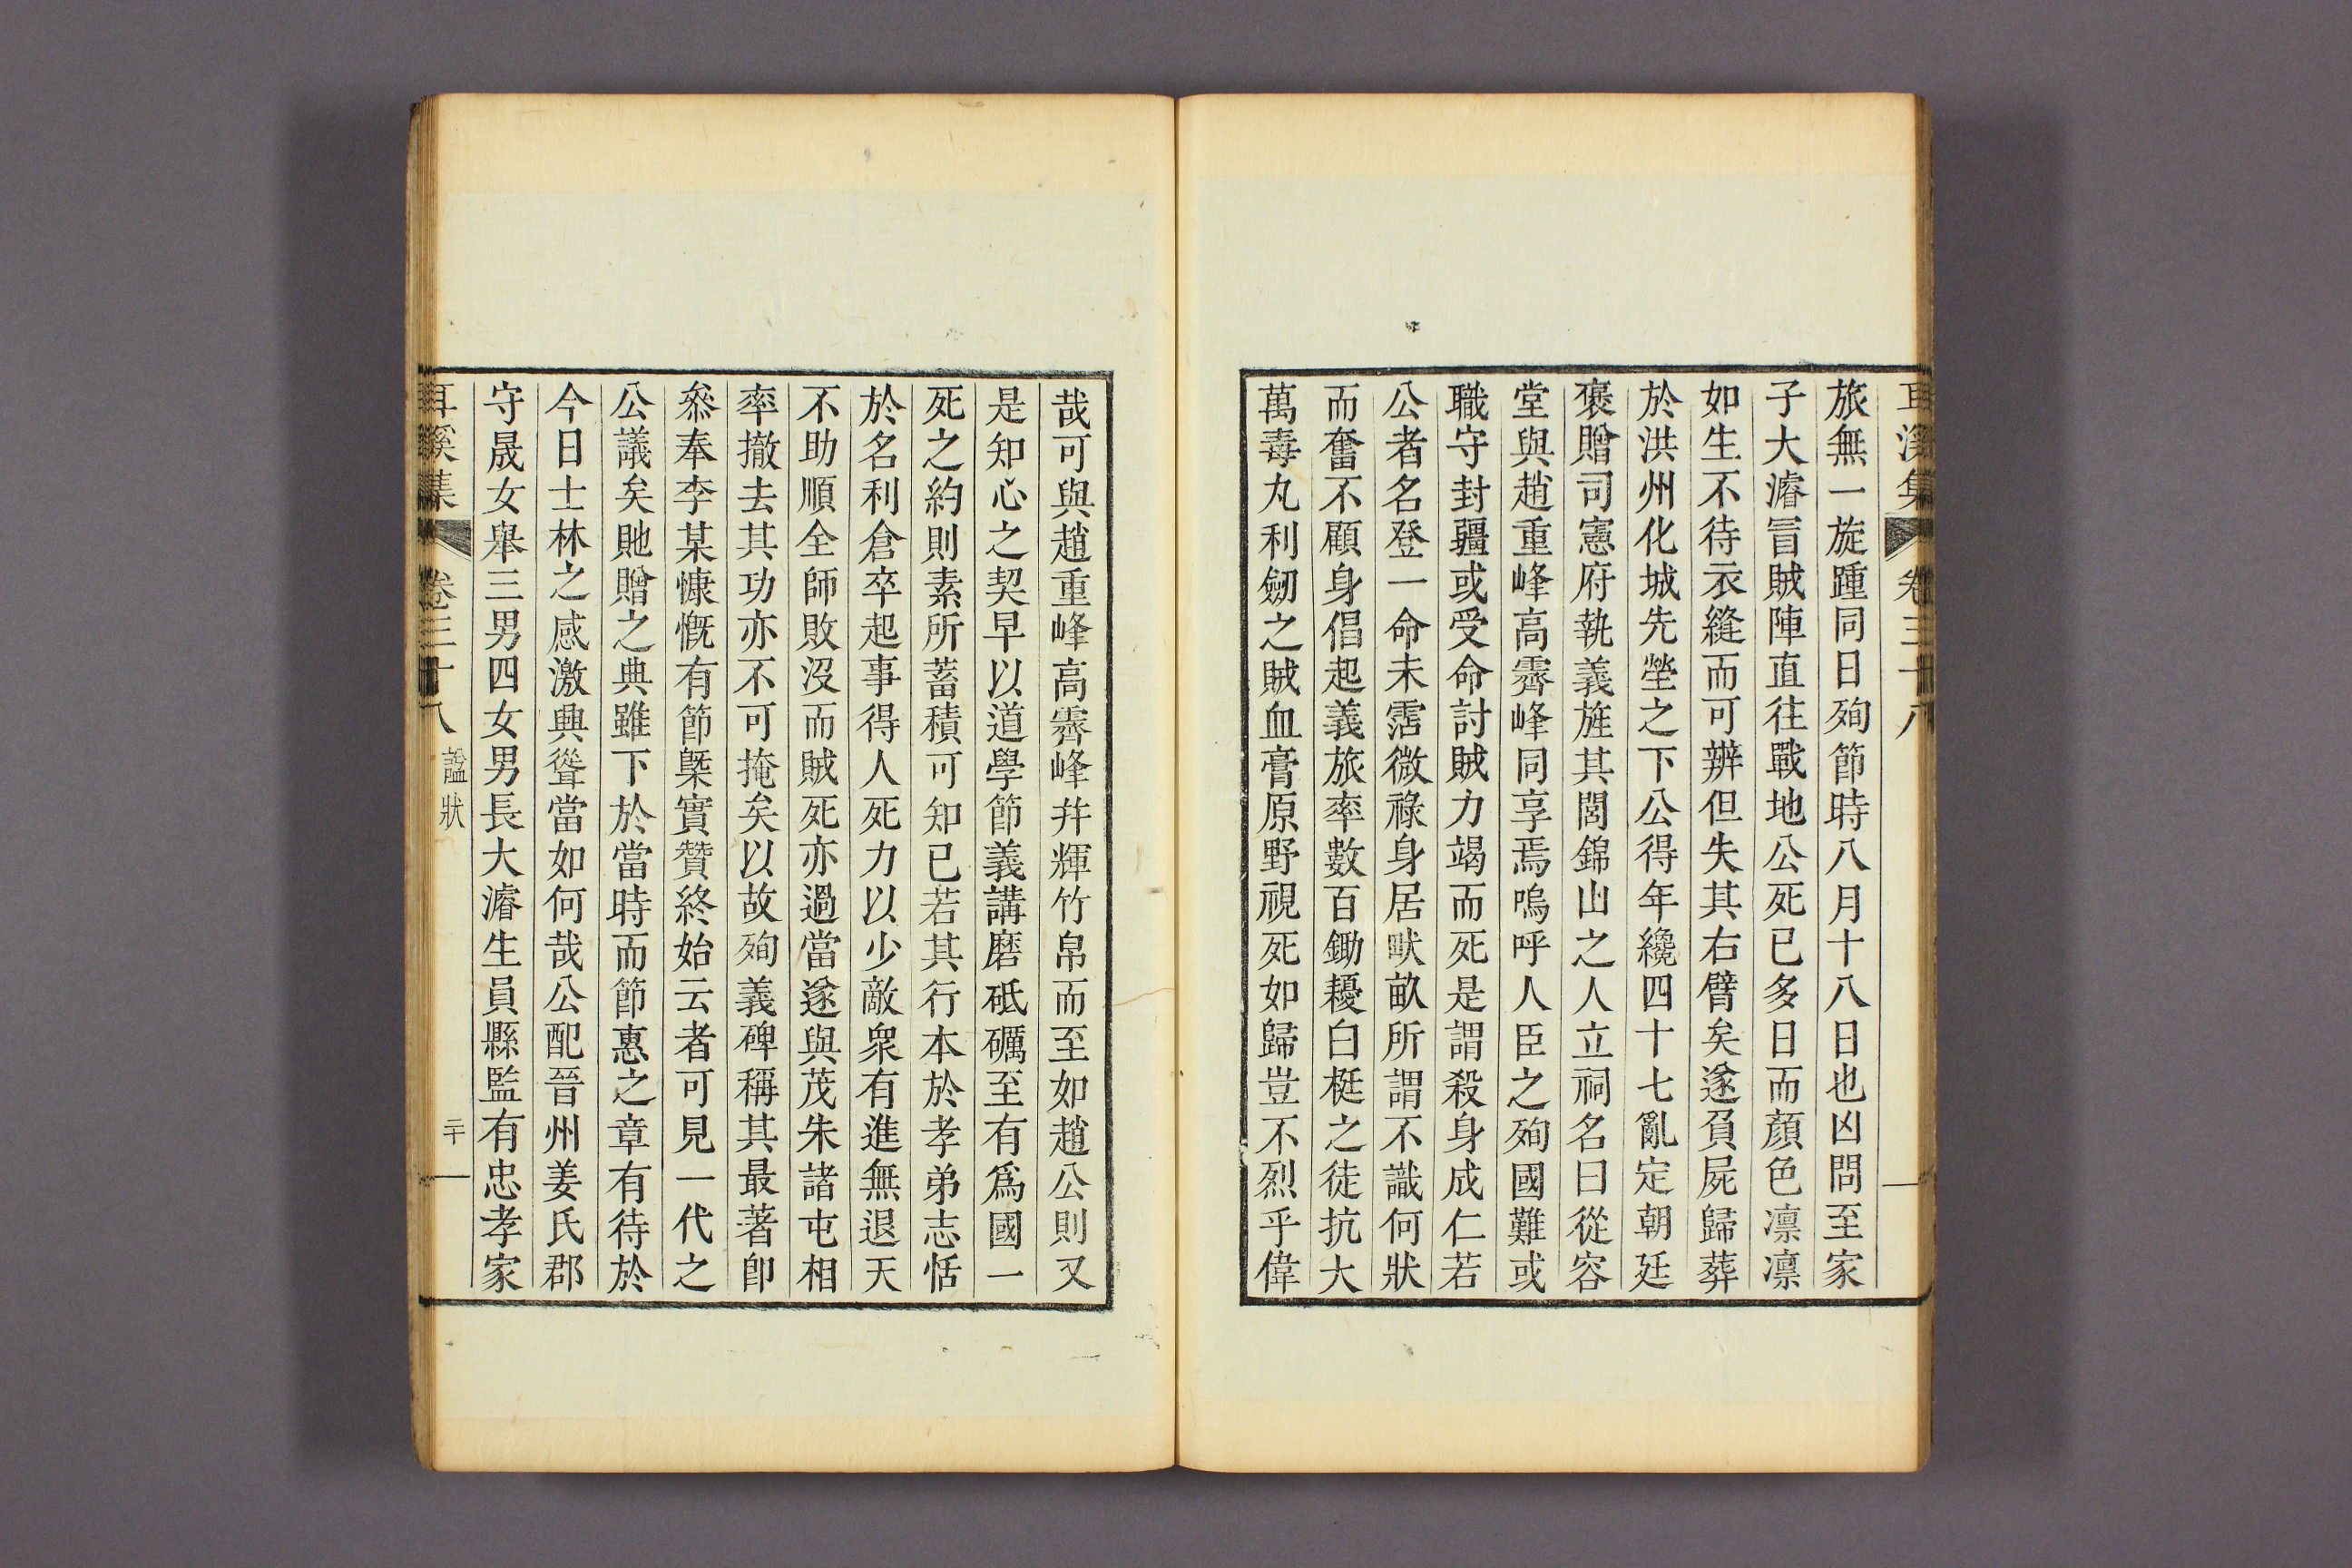 耳溪集 卷三十八
旅無一旋踵同日殉節時八月十八日也凶問至家
子大濬冒賊陣直往戰地公死已多日而顏色凛凛
如生不待衣縫而可辨但失其右臂矣遂負屍歸葬
於洪州化城先塋之下公得年纔四十七亂定朝廷
褒贈司憲府執義旌其閭錦山之人立祠名曰從容
堂與趙重峰高霽峰同享焉嗚呼人臣之殉國難或
職守封疆或受命討賊力竭而死是謂殺身成仁若
公者名登一命未霑微祿身居畎畝所謂不識何狀
而奮不顧身倡起義旅率數百鋤耰白梃之徒抗大
萬毒丸利劒之賊血膏原野視死如歸豈不烈乎偉
哉可與趙重峰高霽峰并輝竹帛而至如趙公則又
是知心之契早以道學節義講磨砥礪至有爲國一
死之約則素所蓄積可知已若其行本於孝弟志恬
於名利倉卒起事得人死力以少敵衆有進無退天
不助順全師敗沒而賊死亦過當遂與茂朱諸屯相
率撤去其功亦不可掩矣以故殉義碑稱其最著卽
叅奉李某慷慨有節槩實贊終始云者可見一代之
公議矣貤贈之典雖下於當時而節惠之章有待於
今日士林之感激興聳當如何哉公配晉州姜氏郡
守晟女舉三男四女男長大濬生員縣監有忠孝家
耳溪集 卷三十八 諡狀 二十